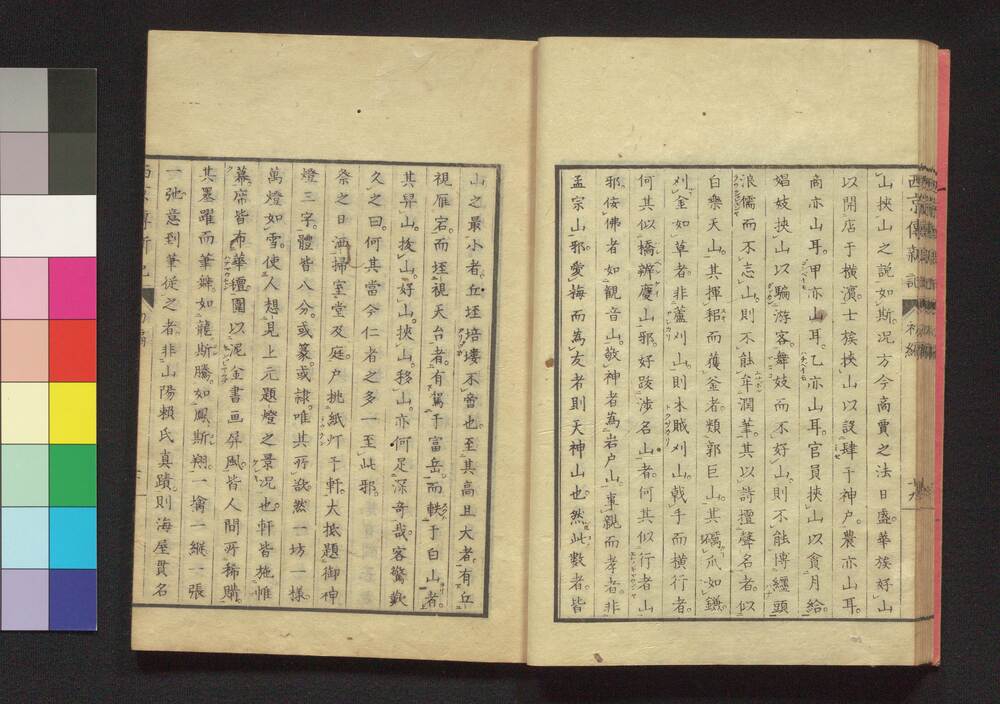 山挾山之說如斯况方今商賈之法日盛華族好山
以開店于橫濱士族挾山以設肆于神戶農亦山耳
商亦山耳甲亦山耳乙亦山耳官員挾山以貪月給
娼妓挾山以騙游客舞妓而不好山則不能博纏頭
浪儒而不志山則不能牟潤筆其以詩擅聲名者似
白樂天山其揮租而獲釜者類郭巨山其礪爪如鎌
刈金如草者非蘆刈山則木賊刈山戟手而橫行者
何其似橋辨慶山邪好跋涉名山者何其似行者山
邪侫佛者如觀音山敬神者為岩戶山事親而孝者非
孟宗山邪愛梅而為友者則天神山也然此數者皆
山之最小者丘垤培塿不啻也至其高且大者有丘
視雁宕而垤視天台者有駕于富岳而軼于白山者
其舁山拔山好山挾山移山亦何足深奇哉客驚歎
久之曰何其當今仁者之多一至此邪
祭之日洒掃室堂及庭戶挑紙灯于軒大抵題御神
燈三字體皆八分或篆或隷唯其所欲然一坊一様
萬燈如雪使人想見上元題燈之景况也軒皆施帷
幕席皆布華氊圍以泥金書画屏風皆人間所稀購
其墨躍而筆舞如龍斯騰如鳳斯翔一擒一縱一張
一弛意到筆從之者非山陽賴氏真蹟則海屋貫名
西京傳新記
初編